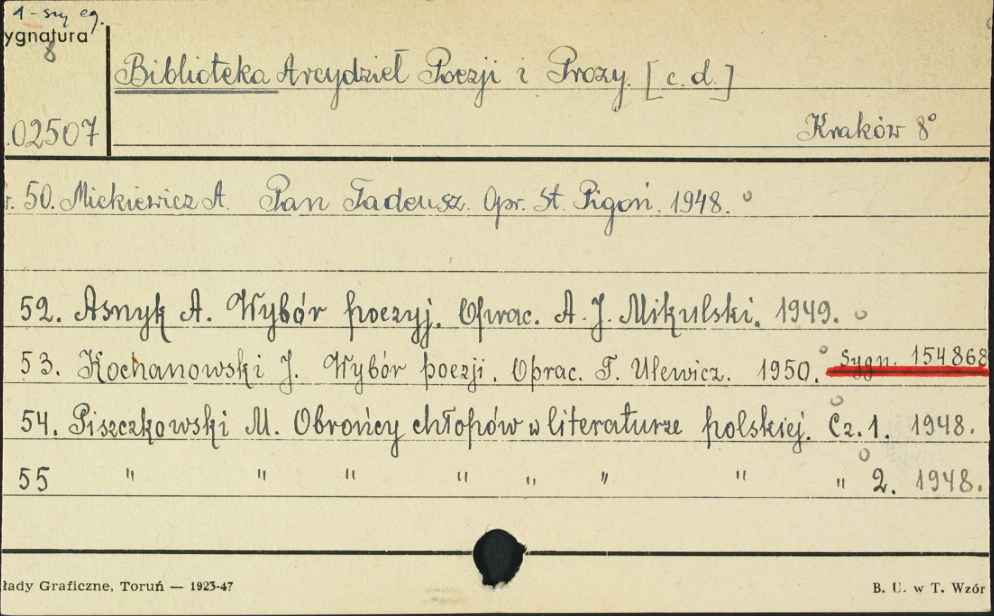 1-szy eg.
ygnatura
8
Biblioteka Arcydzieł Poezji i Prozy. [c.d.]
02507
Kraków 8°
r. 50. Mickiewicz A. Pan Tadeusz. Opr. St. Pigoń. 1948. o
52. Asnyk A. Wybór poezyj. Oprac. A. J. Mikulski. 1949. o
53. Kochanowski J. Wybór poezji. Oprac. T. Ulewicz. 1950. o Sygn. 154868
54. Piszczkowski M. Obrońcy chłopów w literaturze polskiej. Cz. 1. 1948. o
55 " " " " " " " " 2. 1948. o
łady Graficzne, Toruń — 1923-47
B. U. w T. Wzór